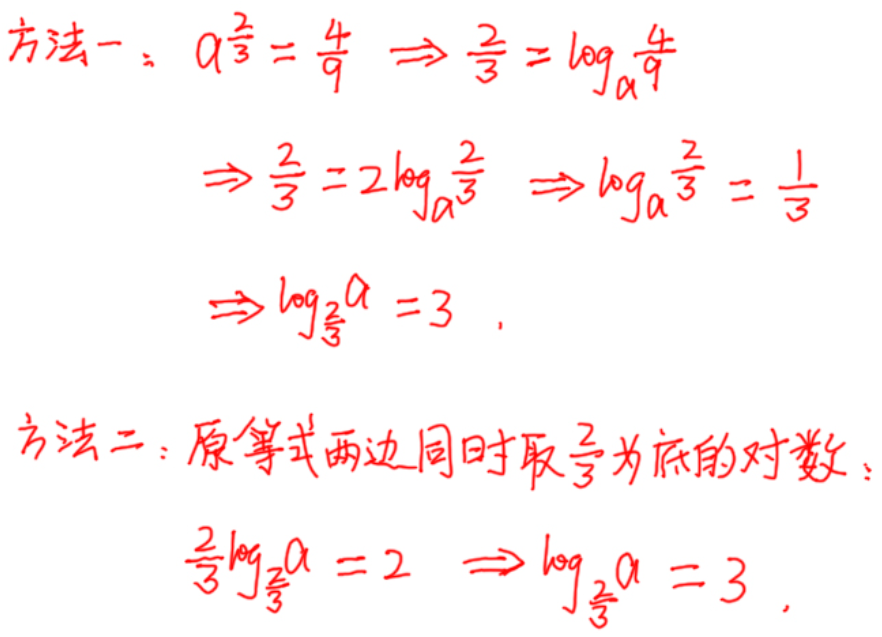 方法一: $a^{\frac{2}{3}} = \frac{4}{9} \Rightarrow \frac{2}{3} = \log_a \frac{4}{9}$
$\Rightarrow \frac{2}{3} = 2\log_a \frac{2}{3} \Rightarrow \log_a \frac{2}{3} = \frac{1}{3}$
$\Rightarrow \log_{\frac{2}{3}} a = 3$.
方法二: 原等式两边同时取$\frac{2}{3}$为底的对数:
$\frac{2}{3}\log_{\frac{2}{3}} a = 2 \Rightarrow \log_{\frac{2}{3}} a = 3$.